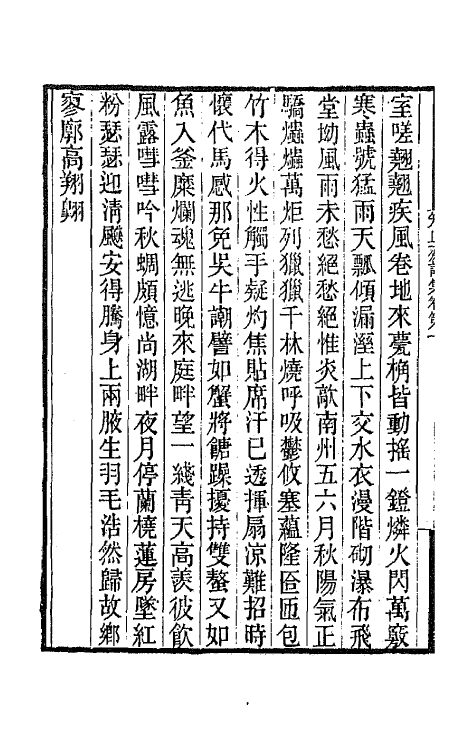 室嗟翹翹疾風卷地來甍桷皆動搖一鐙燐火閃萬竅
寒蟲號猛雨天瓢傾漏溼上下交水衣漫階砌瀑布飛
堂坳風雨未愁絕愁絕惟炎歊南州五六月秋陽氣正
驕爞爞萬炬列獵獵千林燒呼吸鬱攸塞蘊隆匼匝包
竹木得火性觸手疑灼焦貼席汗已透揮扇涼難招時
懷代馬感那免吳牛謿譬如蟹將餹躁擾持雙螯又如
魚入釜糜爛魂無逃晚來庭畔望一綫靑天高羨彼飮
風露嘒嘒吟秋蜩頗憶尚湖畔夜月停蘭橈蓮房墜紅
粉瑟瑟迎淸飈安得騰身上兩腋生羽毛浩然歸故鄉
寥廓高翔翺